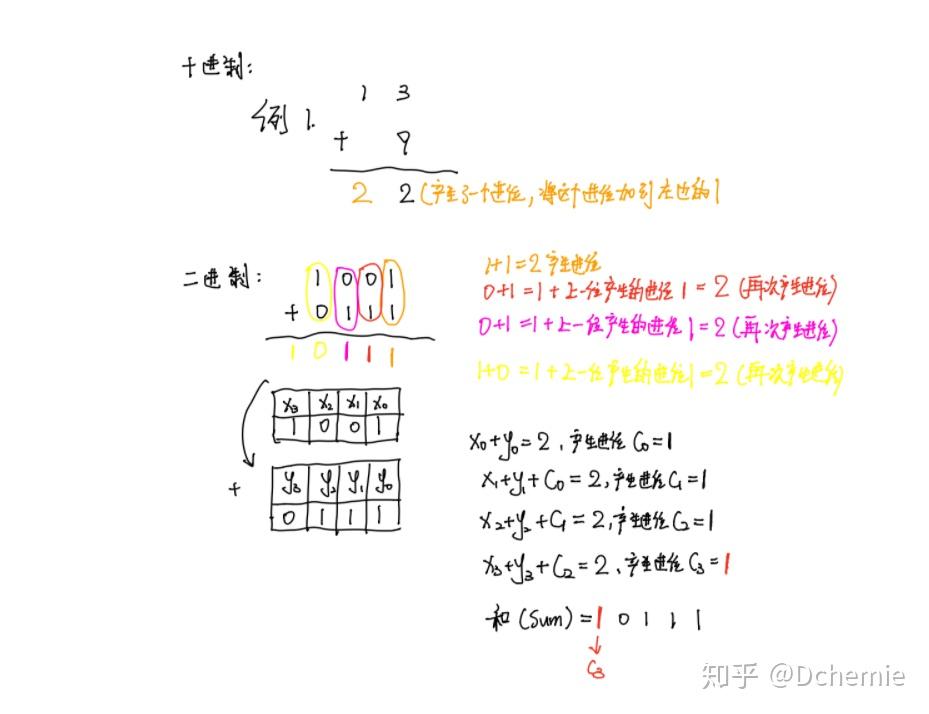 十进制:
例1.
1 3
+ 9
2 2 (产生了一个进位, 将这个进位加到左边的1
二进制:
1 0 0 1
+ 0 1 1 1
1 0 1 1 1
1+1=2 产生进位
0+1=1+上一位产生的进位1=2 (再次产生进位)
0+1=1+上一位产生的进位1=2 (再次产生进位)
1+0=1+上一位产生的进位1=2 (再次产生进位)
x₃ x₂ x₁ x₀
1 0 0 1
+
y₃ y₂ y₁ y₀
0 1 1 1
x₀+y₀=2, 产生进位 C₀=1
x₁+y₁+C₀=2, 产生进位 C₁=1
x₂+y₂+C₁=2, 产生进位 C₂=1
x₃+y₃+C₂=2, 产生进位 C₃=1
和 (Sum) = 1 0 1 1 1
C₃
知乎 @Dchemie